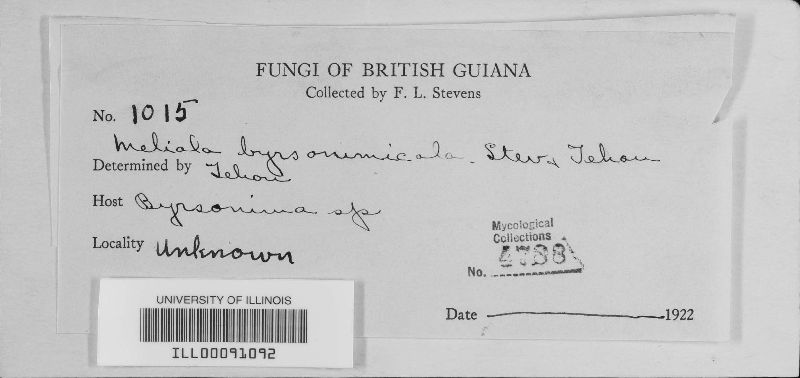 FUNGI OF BRITISH GUIANA
Collected by F. L. Stevens
No. 1015
Meliola byrsonimicola. Stev & Tehon
Determined by Tehon
Host Byrsonima sp
Locality Unknown
Mycological
Collections
No. 4788
Date 1922
UNIVERSITY OF ILLINOIS
ILL00091092